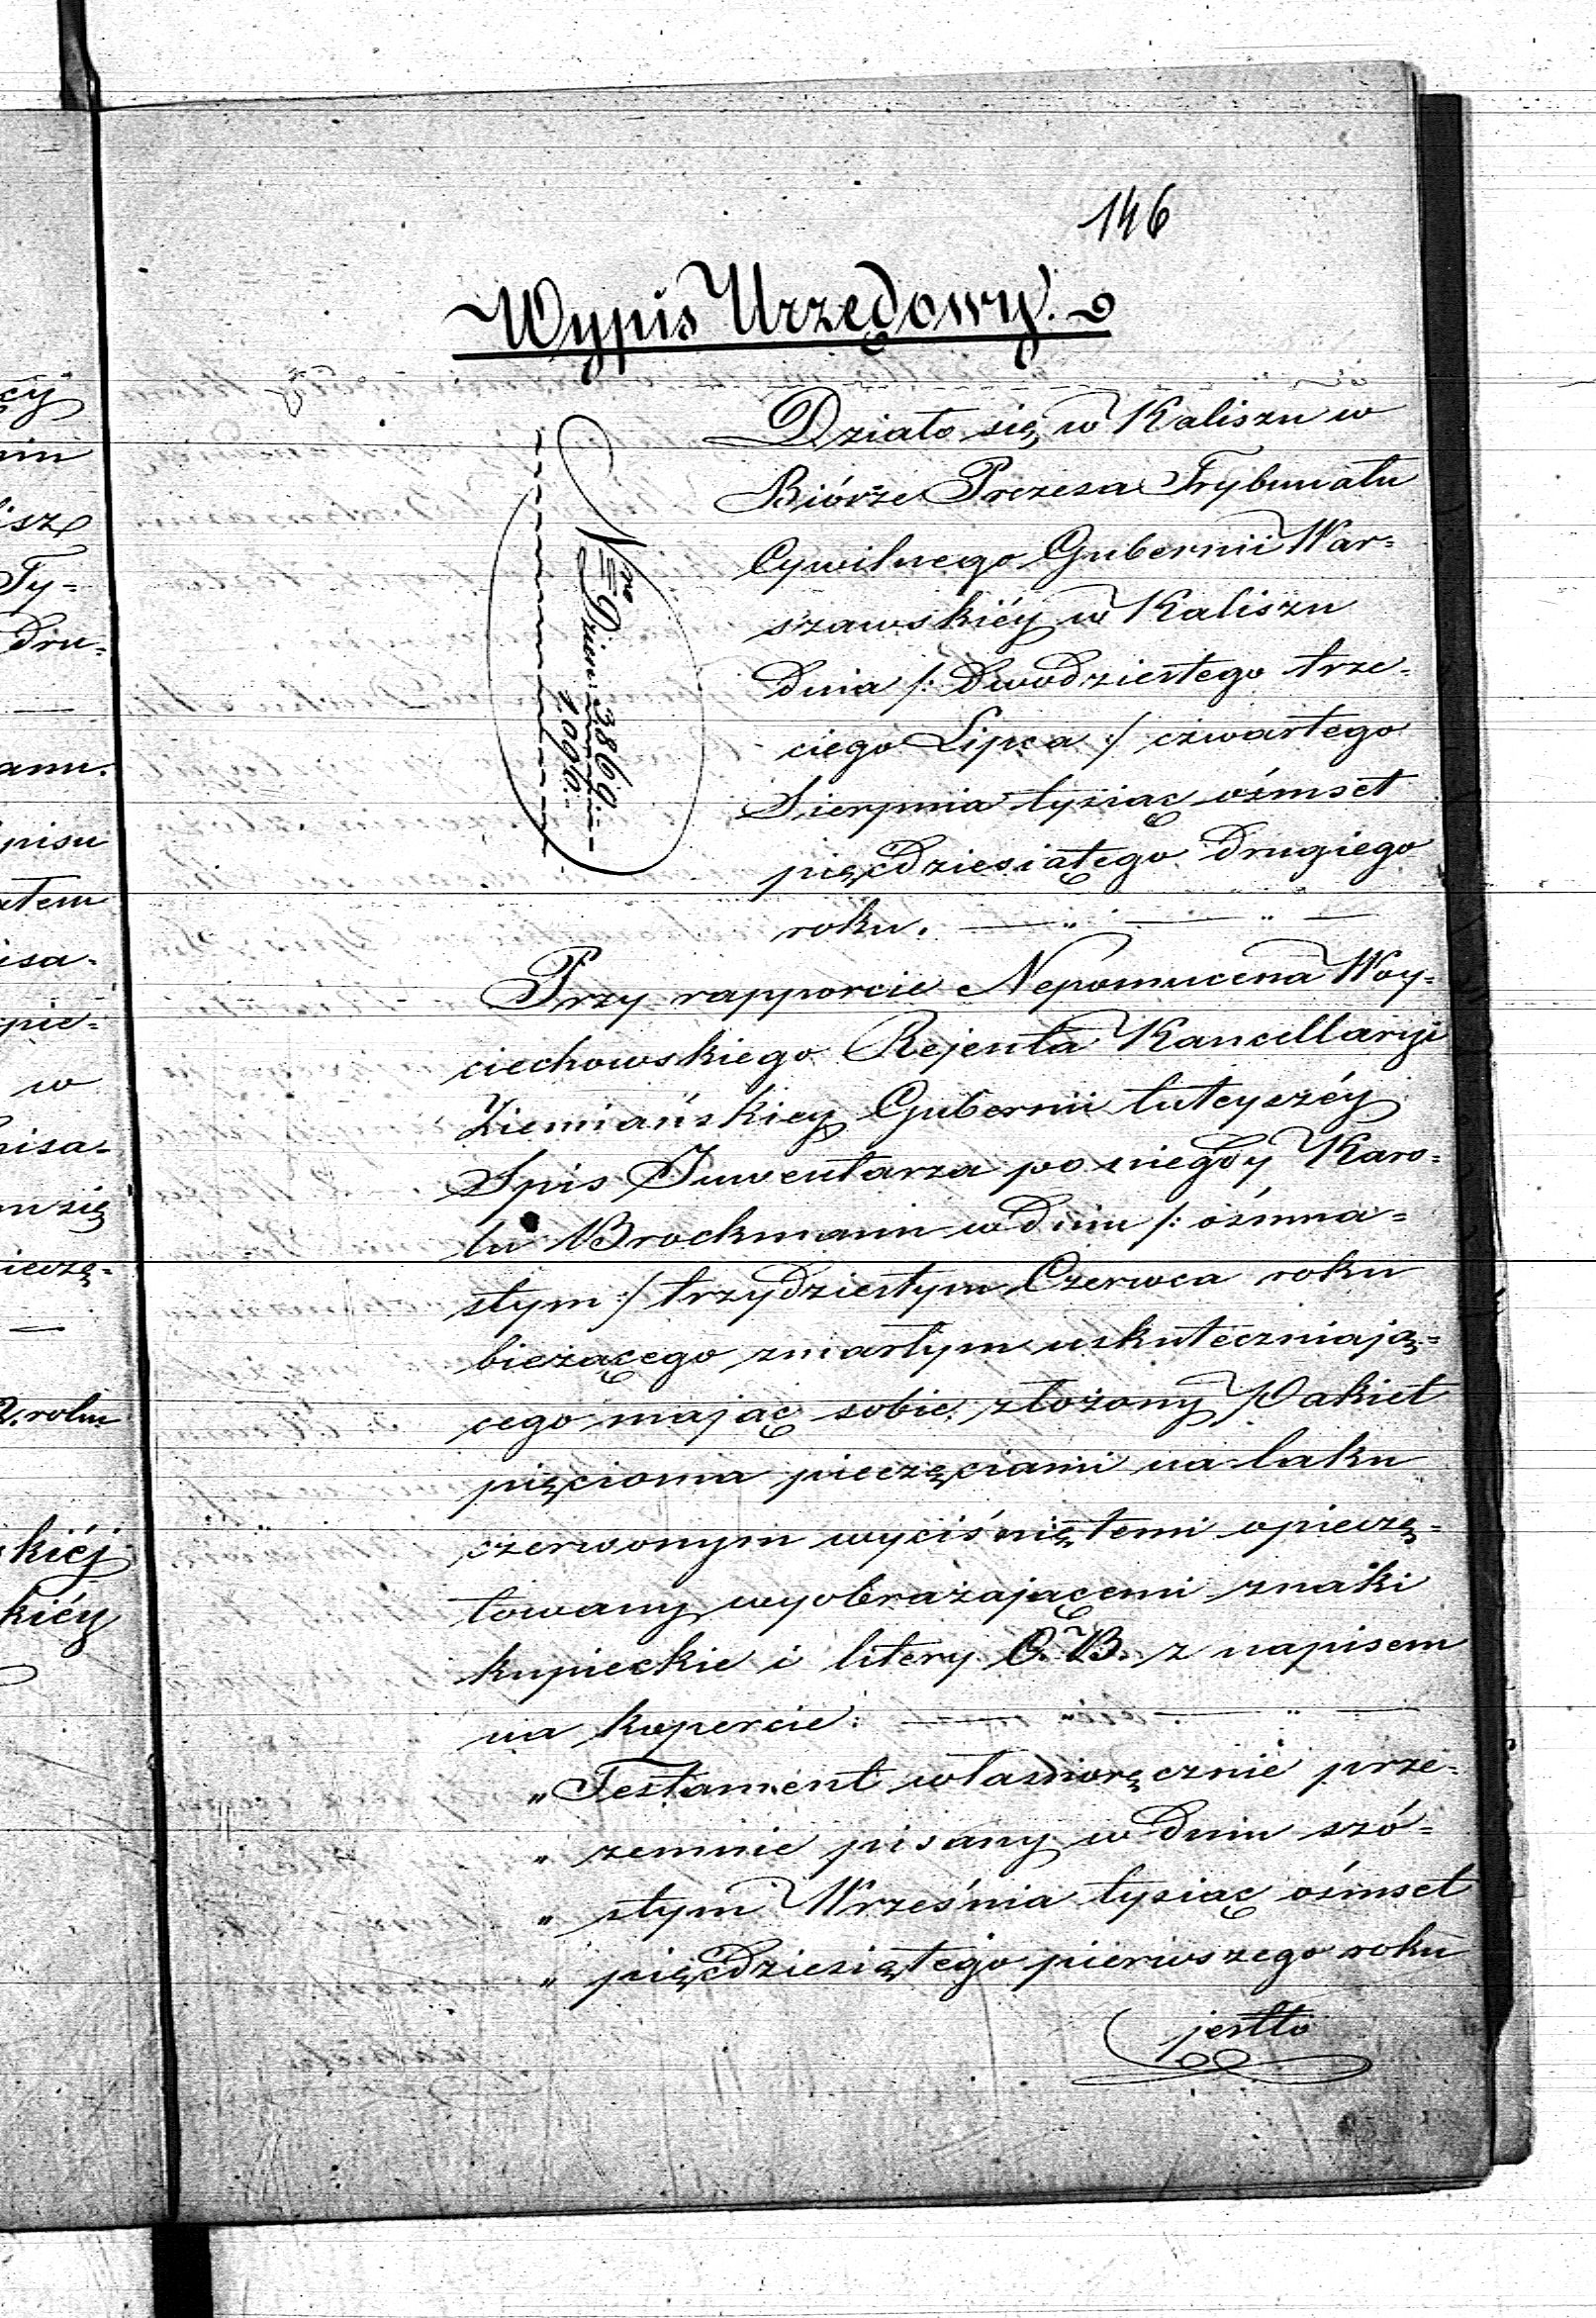 146
Wypis Urzędowy.
Nro Dzien: 3869.
1096.
Działo się w Kaliszu w
Biórze Prezesa Trybunału
Cywilnego Gubernii War=
szawskiéy w Kaliszu
dnia /: dwudziestego trze=
ciego Lipca :/ czwartego
Sierpnia tysiąc ośmset
pięcdziesiątego drugiego
roku.
Przy rapporcie Nepomucena Woy=
ciechowskiego Rejenta Kancellaryi
Ziemiańskiey Gubernii tuteyszéy
Spis Inwentarza po niegdy Karo=
lu Brockmann w dniu /: ośmna=
stym :/ trzydziestym Czerwca roku
bieżącego zmarłym uskuteczniają=
cego mając sobie złożony Pakiet
pięcioma pieczęciami na laku
czerwonym wyciśniętemi opieczę=
towany wyobrażającemi znaki
kupieckie i litery C. B. z napisem
na kopercie:
„ Testament własnoręcznie prze=
„ zemnie pisany w dniu szó=
„ stym Września tysiąc ośmset
„ pięcdziesiątego pierwszego roku
jestto
cy
nin
lisz
Ty=
dru=
anu.
pisu
ałem
isa=
pie=
w
nisa=
mzię
ieczę=
2. roku
kiéj
kiéy